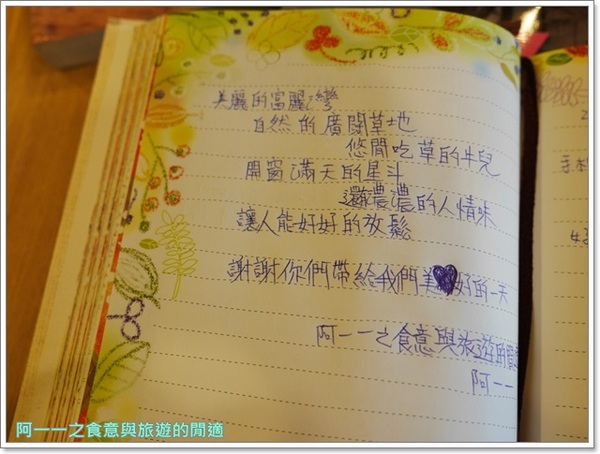 美麗的富麗灣
自然的廣闊草地
悠閒吃草的牛兒
開窗滿天的星斗
還濃濃的人情味
讓人能好好的放鬆
謝謝你們帶給我們美好的一天
阿一一之食意與旅遊的
阿一一
阿一一之食意與旅遊的閒適